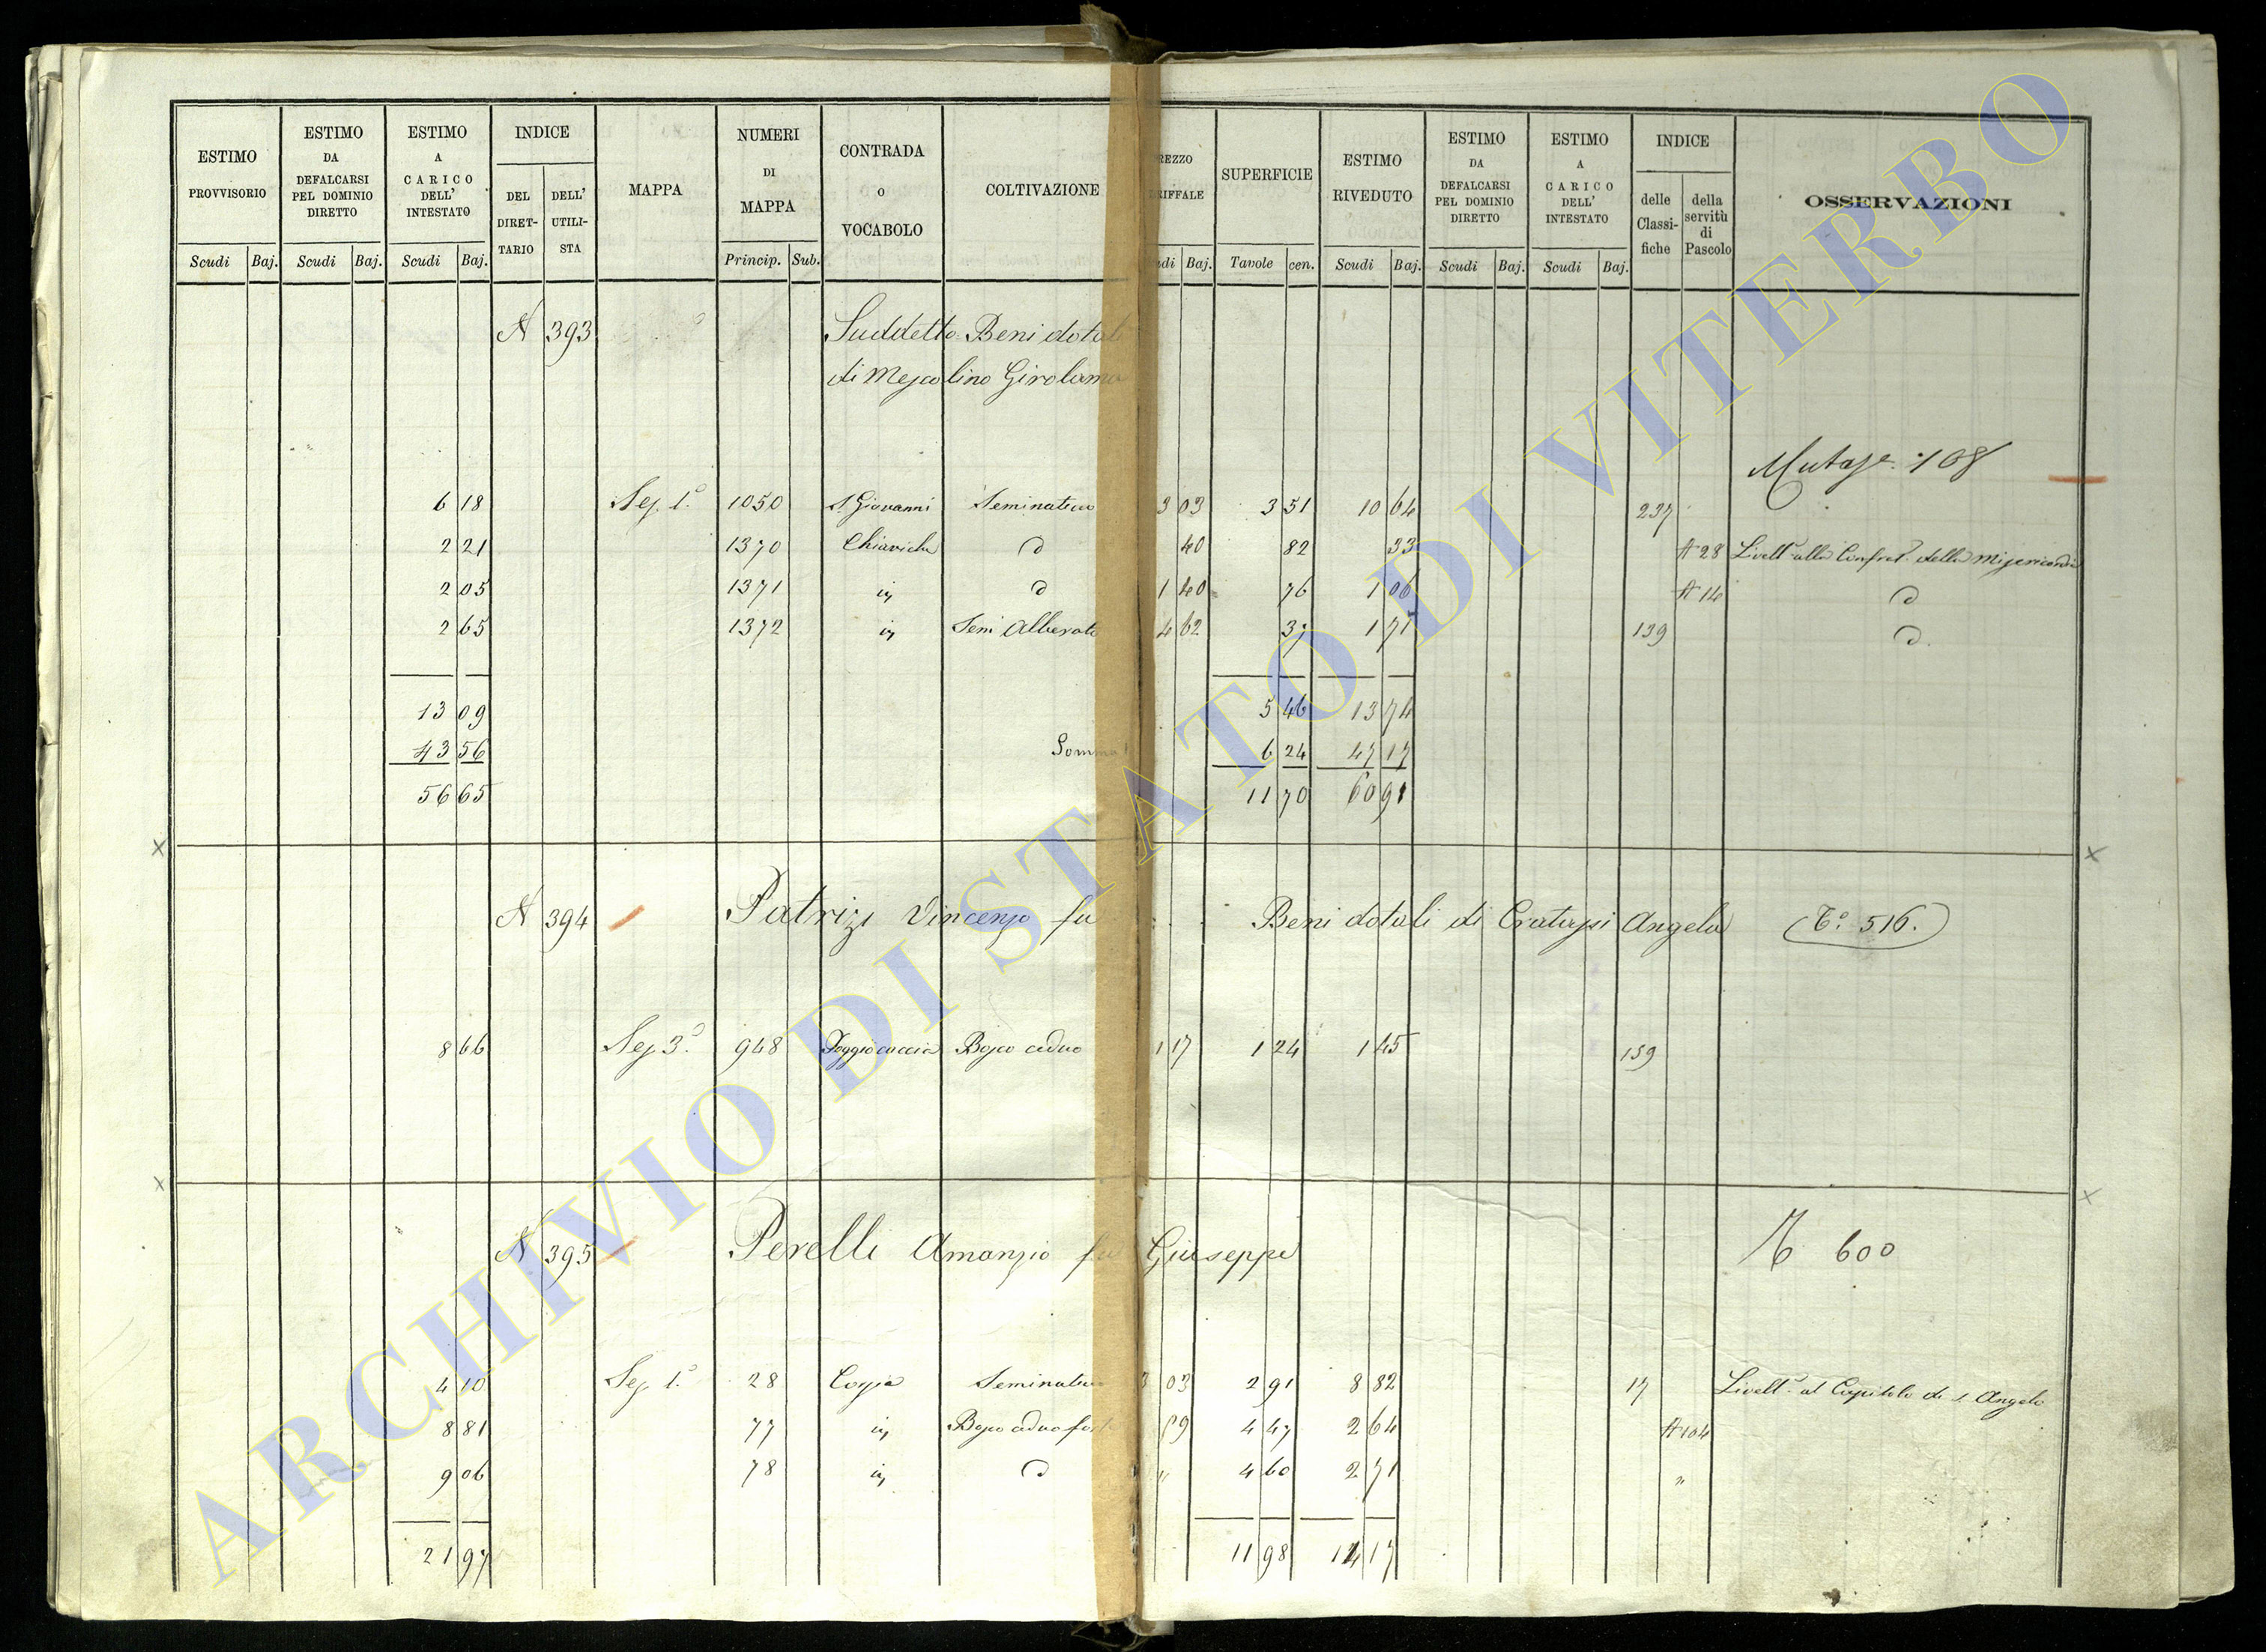 ESTIMO PROVVISORIO | ESTIMO DA DEFALCARSI PEL DOMINIO DIRETTO | ESTIMO A CARICO DELL' INTESTATO | INDICE | MAPPA | NUMERI DI MAPPA | CONTRADA O VOCABOLO | COLTIVAZIONE | REZZO RIFFALE | SUPERFICIE | ESTIMO RIVEDUTO | ESTIMO DA DEFALCARSI PEL DOMINIO DIRETTO | ESTIMO A CARICO DELL' INTESTATO | INDICE | OSSERVAZIONI
DEL DIRETTARIO | DELL' UTILISTA | delle Classifiche | della servitù di Pascolo
Scudi | Baj. | Scudi | Baj. | Scudi | Baj. | Princip. | Sub. | udi | Baj. | Tavole | cen. | Scudi | Baj. | Scudi | Baj. | Scudi | Baj.
N 393 Suddetto Beni dotal
di Mescolino Girolama
Mutaz.e 108
6 18 | Sez. 1.a | 1050 | S. Giovanni | Seminativo | 3 03 | 3 51 | 10 64 | 237
2 21 | 1370 | Chiaviche | d | 40 | 82 | 33 | A 28 | Livell.o alla Confrat.a della Misericordia
2 05 | 1371 | in | d | 1 40 | 76 | 1 06 | A 14 | d
2 65 | 1372 | in | Semi Alberato | 4 62 | 37 | 1 71 | 139 | d
13 09 | 5 46 | 13 74
43 56 | Somma | 6 24 | 47 17
56 65 | 11 70 | 60 91
N 394 Patrizi Vincenzo fu Beni dotali di Cratassi Angela T.o 516.
8 66 | Sez 3.a | 948 | Poggio caccia | Bosco ceduo | 1 17 | 1 24 | 1 45 | 159
N 395 Perelli Amanzio fu Giuseppe T 600
4 10 | Sez 1.a | 28 | Cozza | Seminativo | 3 03 | 2 91 | 8 82 | 17 | Livell.o al Capitolo di S. Angelo
8 81 | 77 | in | Bosco ceduo | 4 47 | 2 64 | A 104
9 06 | 78 | in | d | " | 4 60 | 2 71 | "
21 97 | 11 98 | 14 17
ARCHIVIO DI STATO DI VITERBO